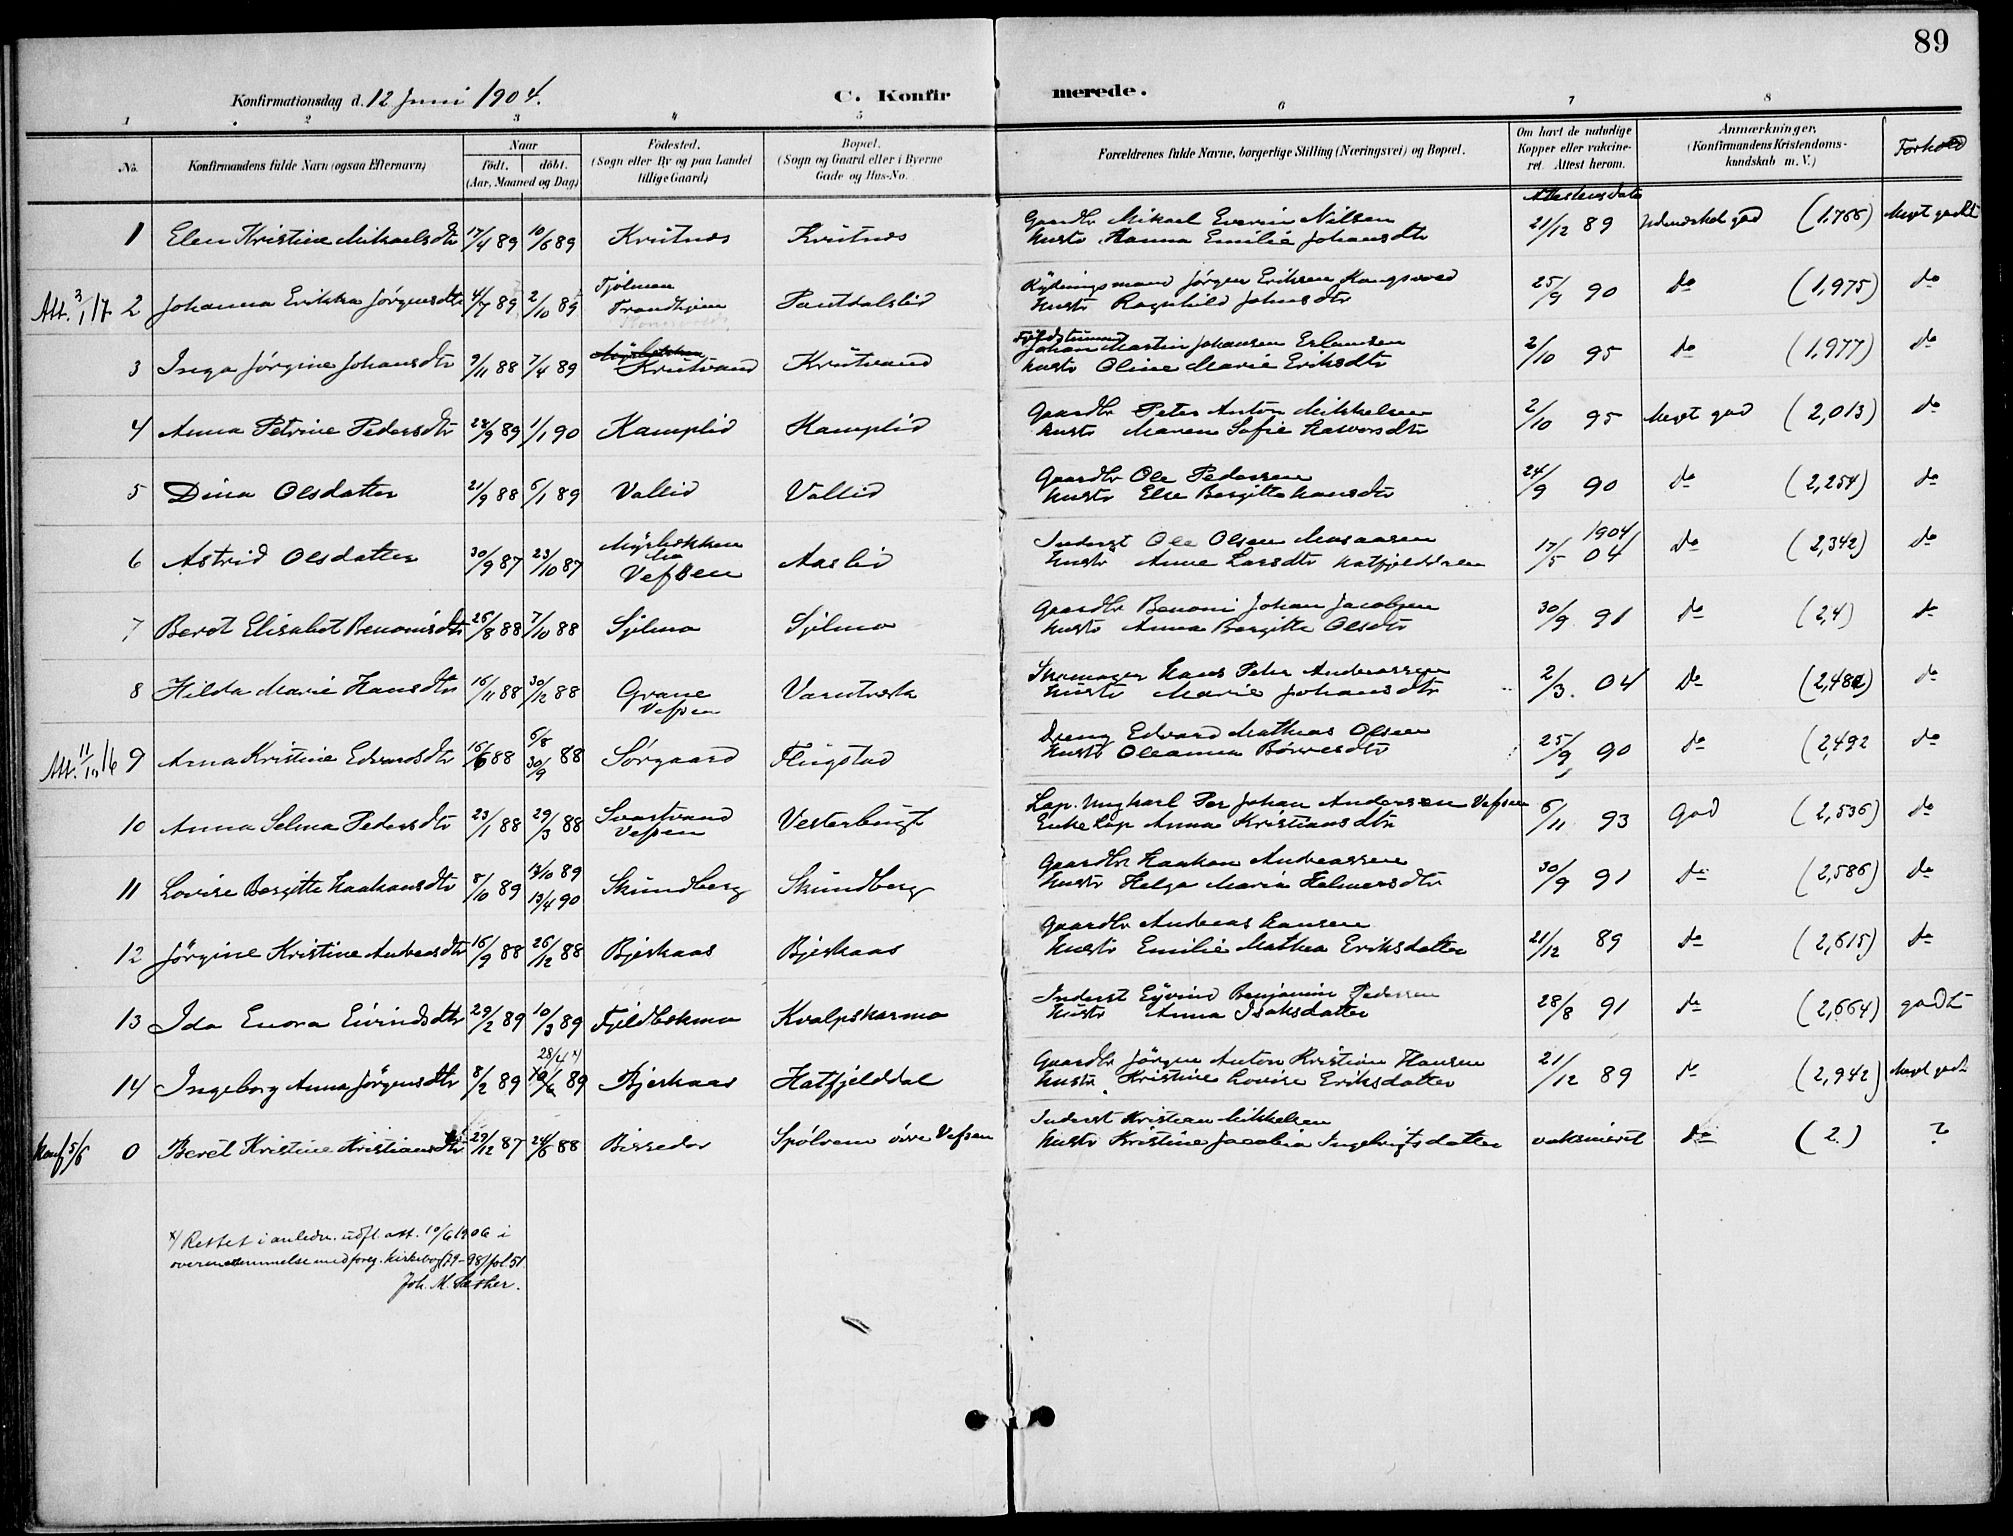 89
Konfirmationsdag d. 12 Juni 1904.
C. Konfirmerede.
1 2 3 4 5 6 7 8
No. Konfirmandens fulde Navn (ogsaa Efternavn) Naar født. døbt. (Aar, Maaned og Dag) Fødested. (Sogn eller By og paa Landet tillige Gaard) Bopæl. (Sogn og Gaard eller i Byerne Gade og Hus-No. Forældrenes fulde Navne, borgerlige Stilling (Næringsvei) og Bopæl. Om havt de naturlige Kopper eller vaccineret. Attest herom. Anmærkninger. (Konfirmandens Kristendomskundskab m. V.) Forhold
Attestens dato
1 Elen Kristine Mikaelsdtr 17/4 89 10/6 89 Krutnes Krutnes Gaardbr Mikael Evevin Nilsen
Hustr Hanna Emilie Johansdtr 21/12 89 Udmærket god (1,766) Meget godt
Att. 3/1 17. 2 Johanna Erikka Jörgensdtr 4/7 89 2/10 89 Fjölman Trondhjem Pantdalslid Rydningsmand Jörgen Eriksen Kongsvold
Hustr Ragnhild Johnsdtr 25/9 90 do (1,975) do
3 Inga Jörgine Johansdtr 9/11 88 7/4 89 Krutvand Krutvand Johan Martin Johansen Erlansen
Hustr Oline Marie Eriksdtr 2/10 95 do (1,977) do
4 Anna Petrine Pedersdtr 28/9 89 1/1 90 Kamplid Kamplid Gaardbr Peter Anton Mikkelsen
Hustr Maren Sofie Halvorsdtr 2/10 95 Meget god (2,013) do
5 Dina Olsdatter 21/9 88 6/1 89 Vallid Vallid Gaardbr Ole Pedersen
Hustr Else Bergitte Hansdtr 24/9 90 do (2,254) do
6 Astrid Olsdatter 30/9 87 23/10 87 Myrbækken Vefsen Aaslid Inderst Ole Olsen Mosaasen
Hustr Anne Larsdtr Hatfjelddalen 17/5 04 1904 do (2,342) do
7 Beret Elisabet Benonisdtr 26/8 88 7/10 88 Sjelmo Sjelmo Gaardbr Benoni Johan Jacobsen
Hustr Anna Bergitte Olsdtr 30/9 91 do (2,4) do
8 Hilda Marie Hansdtr 16/11 88 30/12 88 Grane Vefsen Varntresk Skomager Hans Peter Andreassen
Hustr Marie Johansdtr 2/3. 04 do (2,482) do
Att. 11/10 16 9 Anna Kristine Edvardsdtr 16/6 88 5/8 30/9 88 Sörgaard Flugstad Dreng Edvard Mathias Olsen
Hustr Oleanna Börresdtr 25/9 90 do (2,492 do
10 Anna Selma Pedersdtr 23/1 88 29/3 88 Svartvand Vefsen Vesterbugt Lap. Ungkarl Per Johan Andersen Vefsen
Enke Lap Anna Kristiansdtr 6/11 93 God (2,536) do
11 Lovise Bergitte Haakonsdtr 5/10 89 13/10 89 13/4 90 Skundberg Skundberg Gaardbr Haakon Andreassen
Hustr Helga Maria Helmersdtr 30/9 91 do (2,586) do
12 Jörgine Kristine Andreasdtr 16/9 88 26/12 88 Bjerkaas Bjerkaas Gaardbr Andreas Hansen
Hustr Emilie Mathea Eriksdatter 21/12 89 do (2,615) do
13 Ida Enora Eivindsdtr 29/2 89 10/3 89 Fjeldbekmo Kvalpskarmo Inderst Eyvind Benjamin Pedersen
Hustr Anna Isaksdatter 28/8 91 do (2,664) godt
14 Ingeborg Anna Jörgensdtr 8/2 89 28/4 x) 89 Bjerkaas Hatfjelddal Gaardbr Jörgen Anton Kristian Hansen
Hustr Kristine Lovise Eriksdatter 21/12 89 do (2,942) Meget godt
Konf 5/6 0 Beret Kristine Kristiansdtr 29/12 87 24/6 88 Bisseder Spölrem övre Vefsen Inderst Kristian Mikkelsen
Hustr Kristine Jacobia Ingebrigtsdatter vaksineret do (2.) ?
x) Rettet i anledn. udft. att. 10/6 1906 i
overensstemmelse med foreg. kirkebog (79-98) fol 51
Joh. M. Sæther.